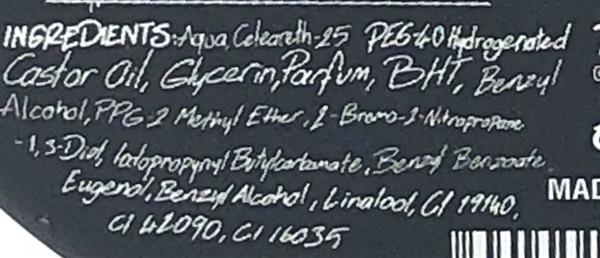 INGREDIENTS: Aqua, Celeareth-25 PEG-40 Hydrogenated
Castor Oil, Glycerin, Parfum, BHT, Benzyl
Alcohol, PPG-2 Methyl Ether, 2-Bromo-2-Nitropropane
-1,3-Diol, Iodopropynyl Butylcarbamate, Benzyl Benzoate
Eugenol, Benzyl Alcohol, Linalool, CI 19140,
CI 42090, CI 16035
MAD